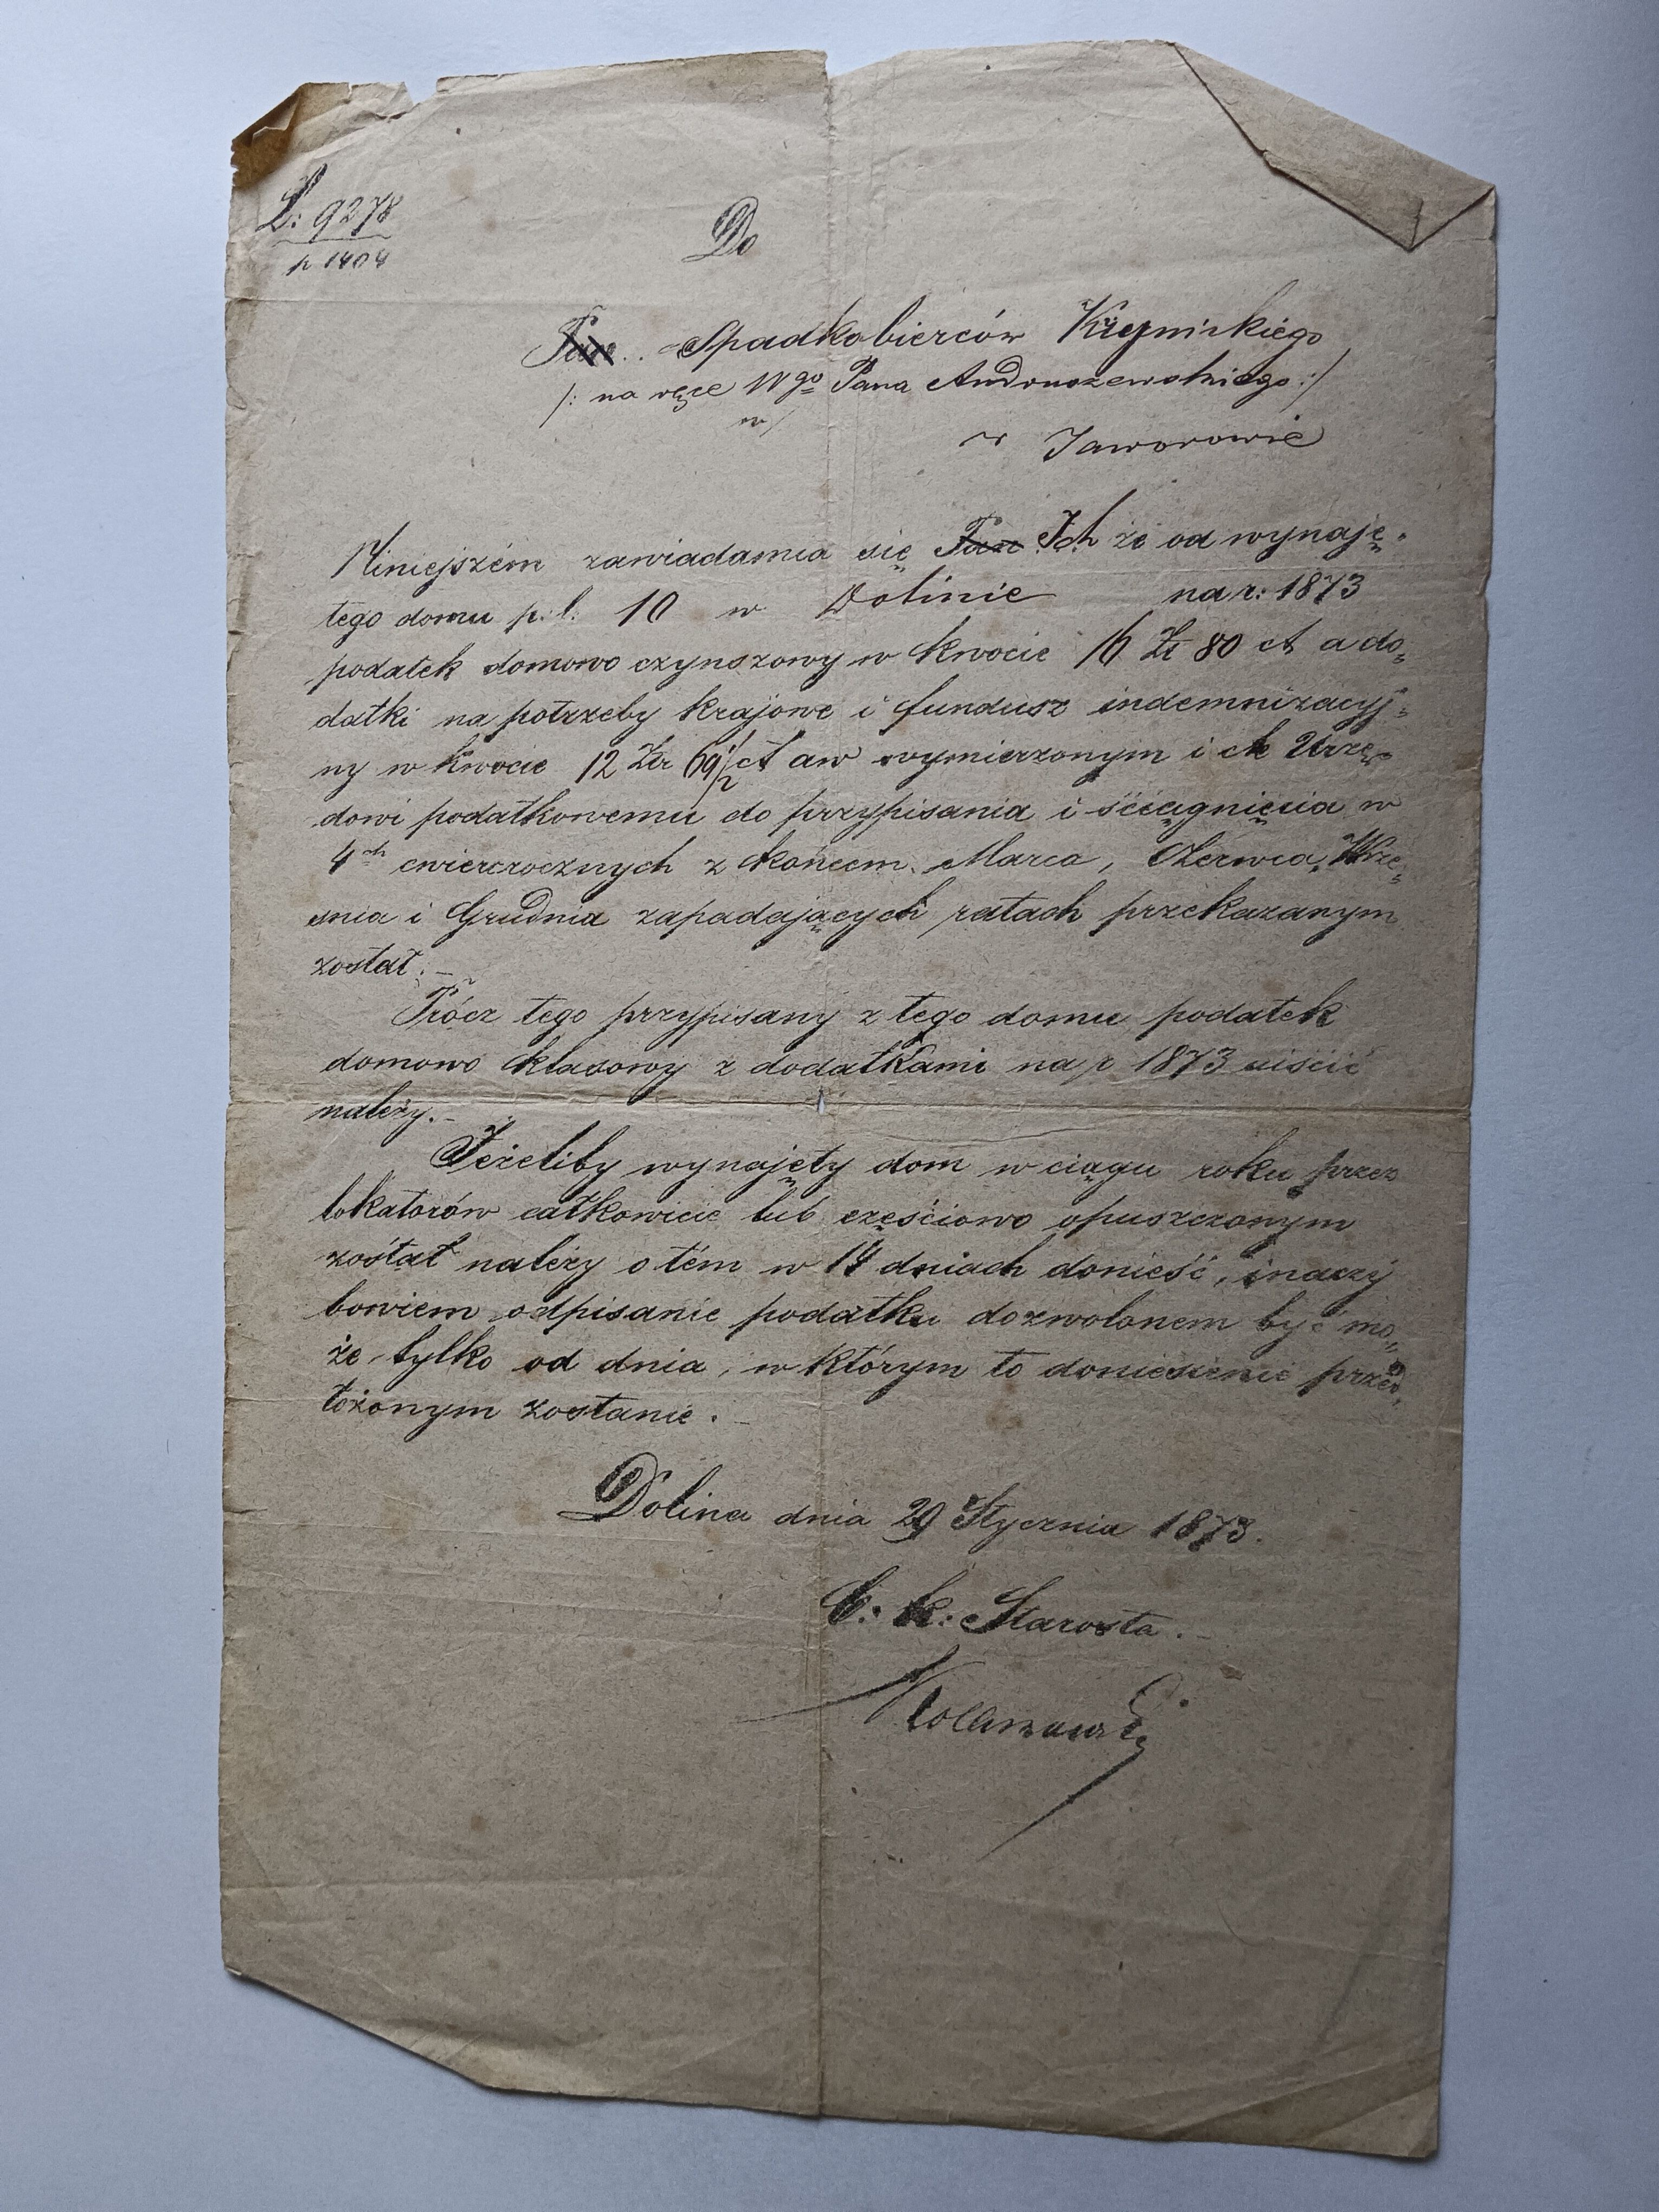 L: 9278
p 1404
Do
Pan.. Spadkobierców
/: na ręce Wgo Pana Andruszewskiego :/
w/
w Jaworowie
Niniejszém zawiadamia się Pan Ich że od wynaję-
tego domu p. l. 10 w Dolinie na r: 1873
podatek domowo czynszowy w kwocie Zł 80 ct a do-
datki na potrzeby krajowe i fundusz indemnizacyj-
ny w kwocie 12 Złr 69 1/2 ct aw wymierzonym i ck Urzę-
dowi podatkowemu do przypisania i ściągnięcia w
4ch cwierczocznych z końcem Marca, Czerwca, Wrze-
snia i Grudnia zapadających ratach przekazanym
został. -
Prócz tego przypisany z tego domu podatek
domowo klasowy z dodatkami na r 1873 uiścić
należy. -
Jeżeliby wynajęty dom w ciągu roku przez
lokatorów całkowicie lub częściowo opuszczonym
został należy o tém w 14 dniach donieść, inaczéj
bowiem odpisanie podatku dozwolonem być mo-
że tylko od dnia, w którym to doniesienie przed-
łożonym zostanie. -
Dolina dnia 29 Stycznia 1873.
C. k: Starosta. -